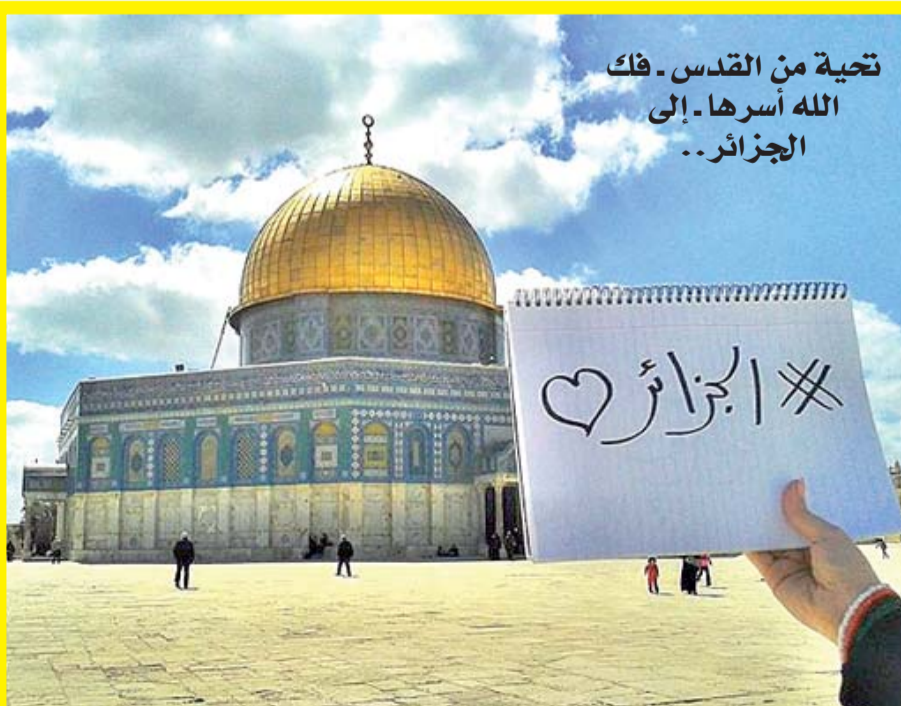 تحية من القدس ـ فك
الله أسرها ـ إلى
الجزائر..
#الجزائر♡